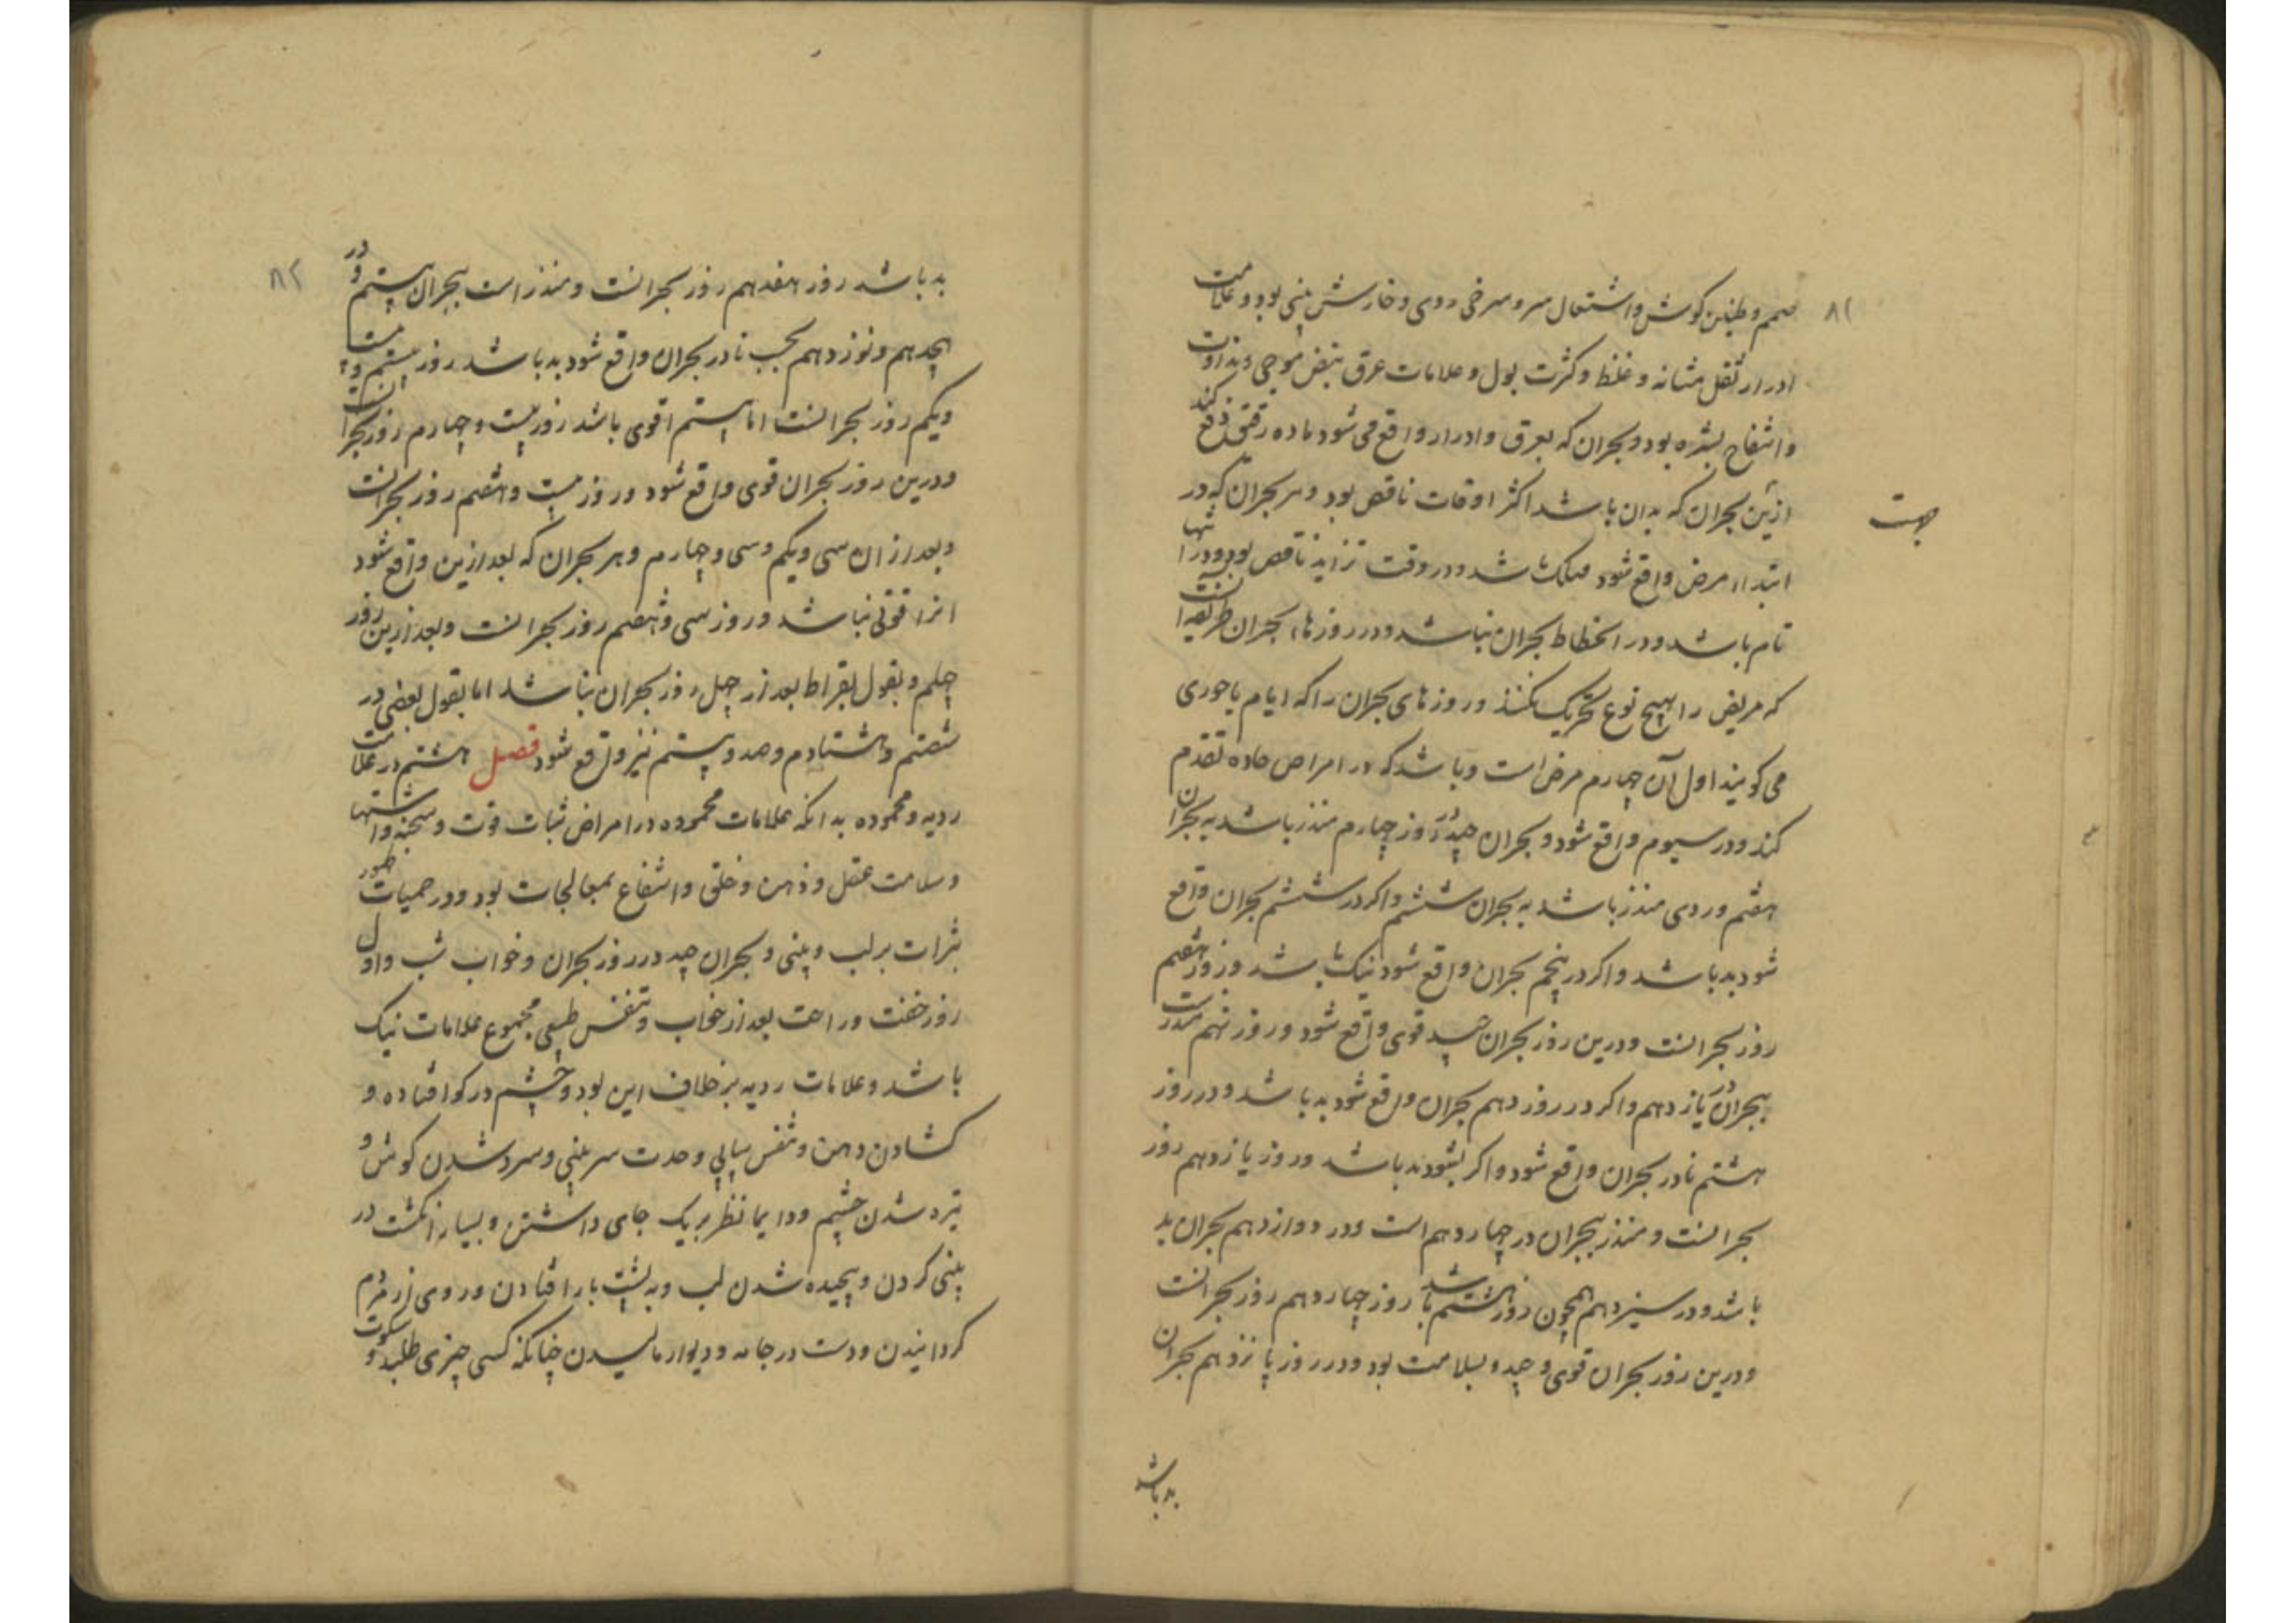 ۸۱
صمم و طنین کوش و اشتعال سر و سرخی روی و خارش بینی بود و علامت
ادرار ثقل مثانه و غلظ و کثرت بول و علامات عرق نبض موجی و نداوت
و انتفاخ بشره بود و بحران که بعرق و ادرار واقع می شود ماده رقیق دفع کند
ازین بحران که بدان باشد اکثر اوقات ناقص بود و هر بحران که در
جهت
ابتداء مرض واقع شود مهلک باشد و در وقت تزاید ناقص بود و در انتها
تام باشد و در انحطاط بحران نباشد و در روزهاء بحران طریقه آنست
که مریض را بهیچ نوع تحریک نکنند و روزهای بحران را که ایام باحوری
می کویند اول آن چهارم مرض است و باشد که در امراض حاده تقدم
کند و در سیوم واقع شود و بحران جید در روز چهارم منذر باشد به بحران
هفتم و ردی منذر باشد به بحران ششم و اکر در ششم بحران واقع
شود بد باشد و اکر در پنجم بحران واقع شود نیک باشد و روز هفتم
روز بحرانست و درین روز بحران جید قوی واقع شود و روز نهم منذرست
ببحران در یازدهم و اکر در روز دهم بحران واقع شود بد باشد و در روز
هشتم نادر بحران واقع شود و اکر بشود بد باشد و روز یازدهم روز
بحرانست و منذر ببحران در چهاردهم است و در دوازدهم بحران بد
باشد و در سیزدهم همچون روز هشتم باشد روز چهاردهم روز بحرانست
و درین روز بحران قوی و جید و بسلامت بود و در روز پانزدهم بحران
بد باشد
۸۲
بد باشد روز هفدهم روز بحرانست و منذر است ببحران بیستم و در
هجدهم و نوزدهم بحسب نادر بحران واقع شود بد باشد روز بیستم و بیست
ویکم روز بحرانست اما بیستم اقوی باشد روز بیست و چهارم روز بحرانست
و درین روز بحران قوی واقع شود و روز بیست و هفتم روز بحرانست
و بعد از ان سی ویکم و سی و چهارم و هر بحران که بعد ازین واقع شود
انرا قوتی نباشد و روز سی و هفتم روز بحرانست و بعد ازین روز
چهلم و بقول بقراط بعد از چهل روز بحران نباشد اما بقول بعضی در
شصتم و هشتادم و صد و بیستم نیز واقع شود فصل هشتم در علامات
ردیه و محموده بدانکه علامات محموده در امراض ثبات قوت و سحنه و اشتها
و سلامت عقل و ذهن و خلق و انتفاع بمعالجات بود و در حمیات ظهور
بثرات بر لب و بینی و بحران جید در روز بحران و خواب شب و اول
روز خفت و راحت بعد از خواب و تنفس طبیعی مجموع علامات نیک
باشد و علامات ردیه بر خلاف این بود و چشم در کو افتاده و
کشادن دهن و تنفس پیاپی و حدت سر بینی و سرد شدن کوش و
تیره شدن چشم و دایما نظر بر یک جای داشتن و بسیار انکشت در
بینی کردن و پیچیده شدن لب و به پشت باز افتادن و روی از مردم
کردانیدن و دست در جامه و دیوار مالیدن چنانکه کسی چیزی طلبد و سکوت